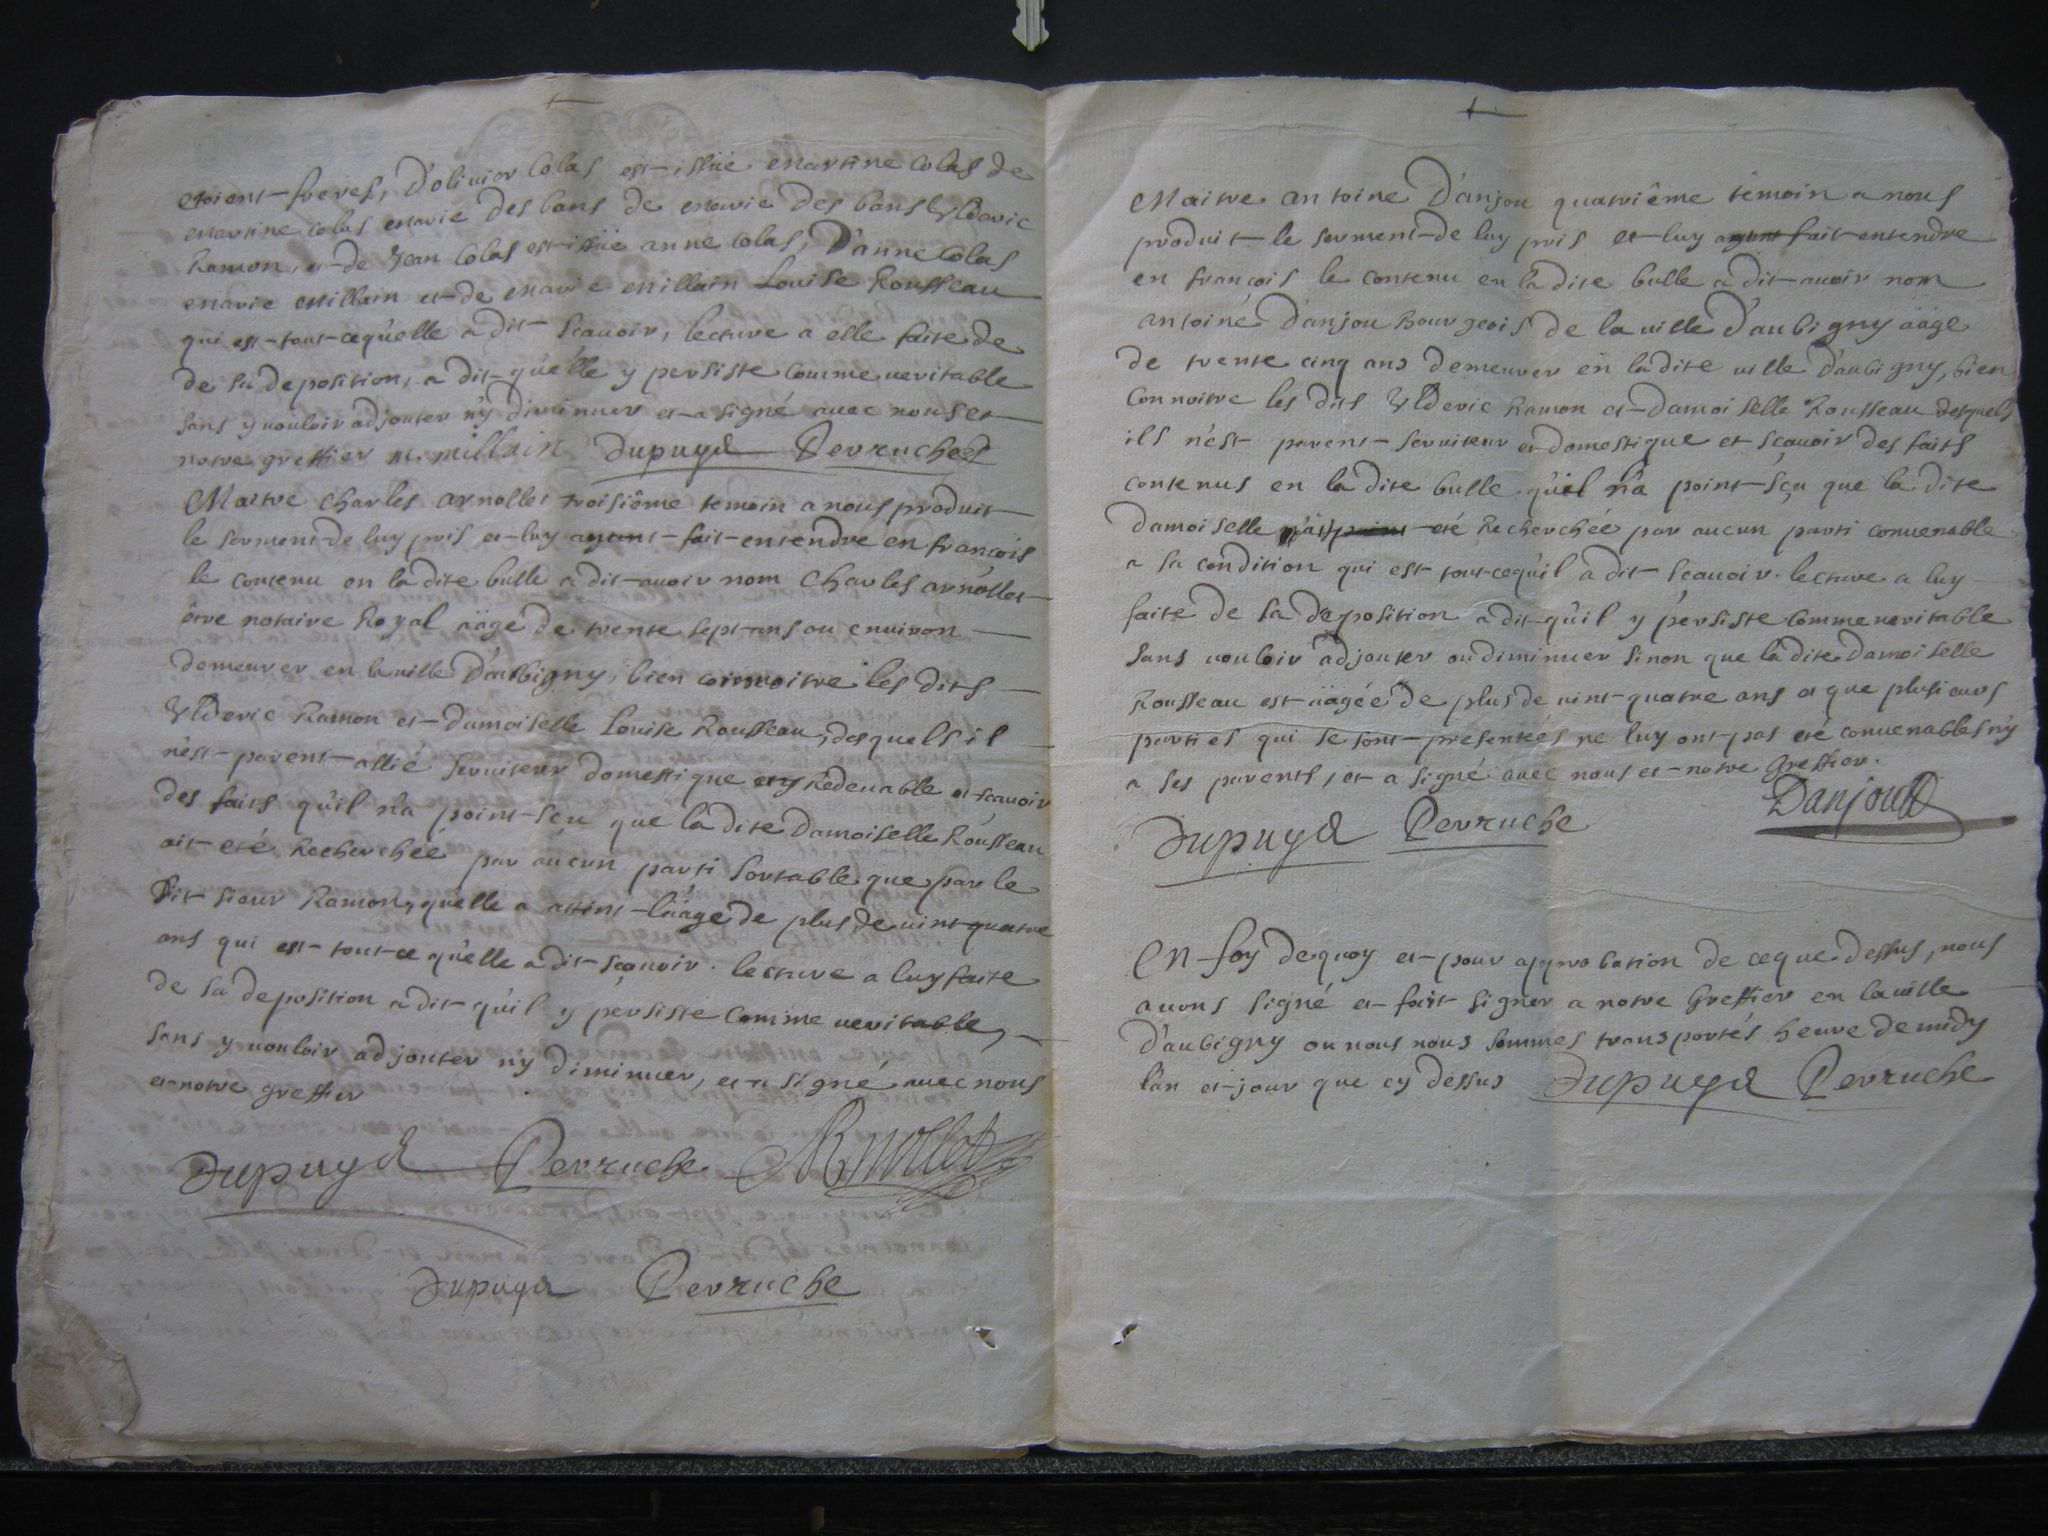 etoient freres, D'olivier Colas est issüe Martine Colas de
Martine Colas Marie Des bans de Marie Des bans Ulderic
Ramon, et de Jean Colas est issüe anne Colas, D'anne Colas
Marie Millain et de Marie Millain Louise Rousseau
qui est tout ce qu'elle a dit sçauoir, lecture a elle faite de
de sa deposition, a dit qu'elle y persiste Comme ueritable
sans y uouloir adjouter n'y diminuer et a signé auec nous et
notre greffier M. millain Dupuy Perruche
Maitre Charles arnollet troisiême temoin a nous produit
le serment de luy pris et luy ayant fait entendre en françois
le contenu en la dite bulle a dit auoir nom Charles arnollet
être notaire Royal äâge de trente sept ans ou enuiron
demeurer en la uille D'aubigny, bien connoitre les dits
Ulderic Ramon et Damoiselle Louise Rousseau, desquels il
n'est parent allié seruiteur domestique n'y Redeuable et sçauoir
des faits qu'il n'a point sçu que la dite Damoiselle Rousseau
ait eté Recherchée par aucun parti sortable que par le
dit sieur Ramon, quelle a atteint l'äâge de plus de uint quatre
ans qui est tout ce qu'elle a dit sçauoir. lecture a luy faite
de sa deposition a dit qu'il y persiste Comme ueritable,
sans y uouloir adjouter n'y diminuer, et a signé auec nous
et notre greffier
Dupuy Perruche Arnollet
Dupuy Perruche
Maitre antoine D'anjou quatriême têmoin a nous
produit le serment de luy pris et luy ayant fait entendre
en françois le contenu en la dite bulle a dit auoir nom
antoine D'anjou Bourgeois de la uille D'aubigny äâge
de trente cinq ans demeurer en la dite uille D'aubigny, bien
Connoitre les dits Ulderic Ramon et Damoiselle Rousseau desquels
ils n'est parent seruiteur et domestique et sçauoir des faits
contenus en la dite bulle qu'il n'a point sçu que la dite
damoiselle ait point eté Recherchée par aucun parti conuenable
a sa condition qui est tout ce qu'il a dit sçauoir. lecture a luy
faite de sa deposition a dit qu'il y persiste Comme ueritable
sans uouloir adjouter ou diminuer sinon que la dite Damoiselle
Rousseau est äâgée de plus de uint quatre ans et que plusieurs
parties qui se sont presentées ne luy ont pas eté conuenables n'y
a ses parents, et a signé auec nous et notre Greffier.
Danjou
Dupuy Perruche
En foy de quoy et pour approbation de ce que dessus, nous
auons signé et fait signer a notre Greffier en la uille
D'aubigny ou nous nous sommes transportés heure de midy
l'an et jour que cy dessus Dupuy Perruche